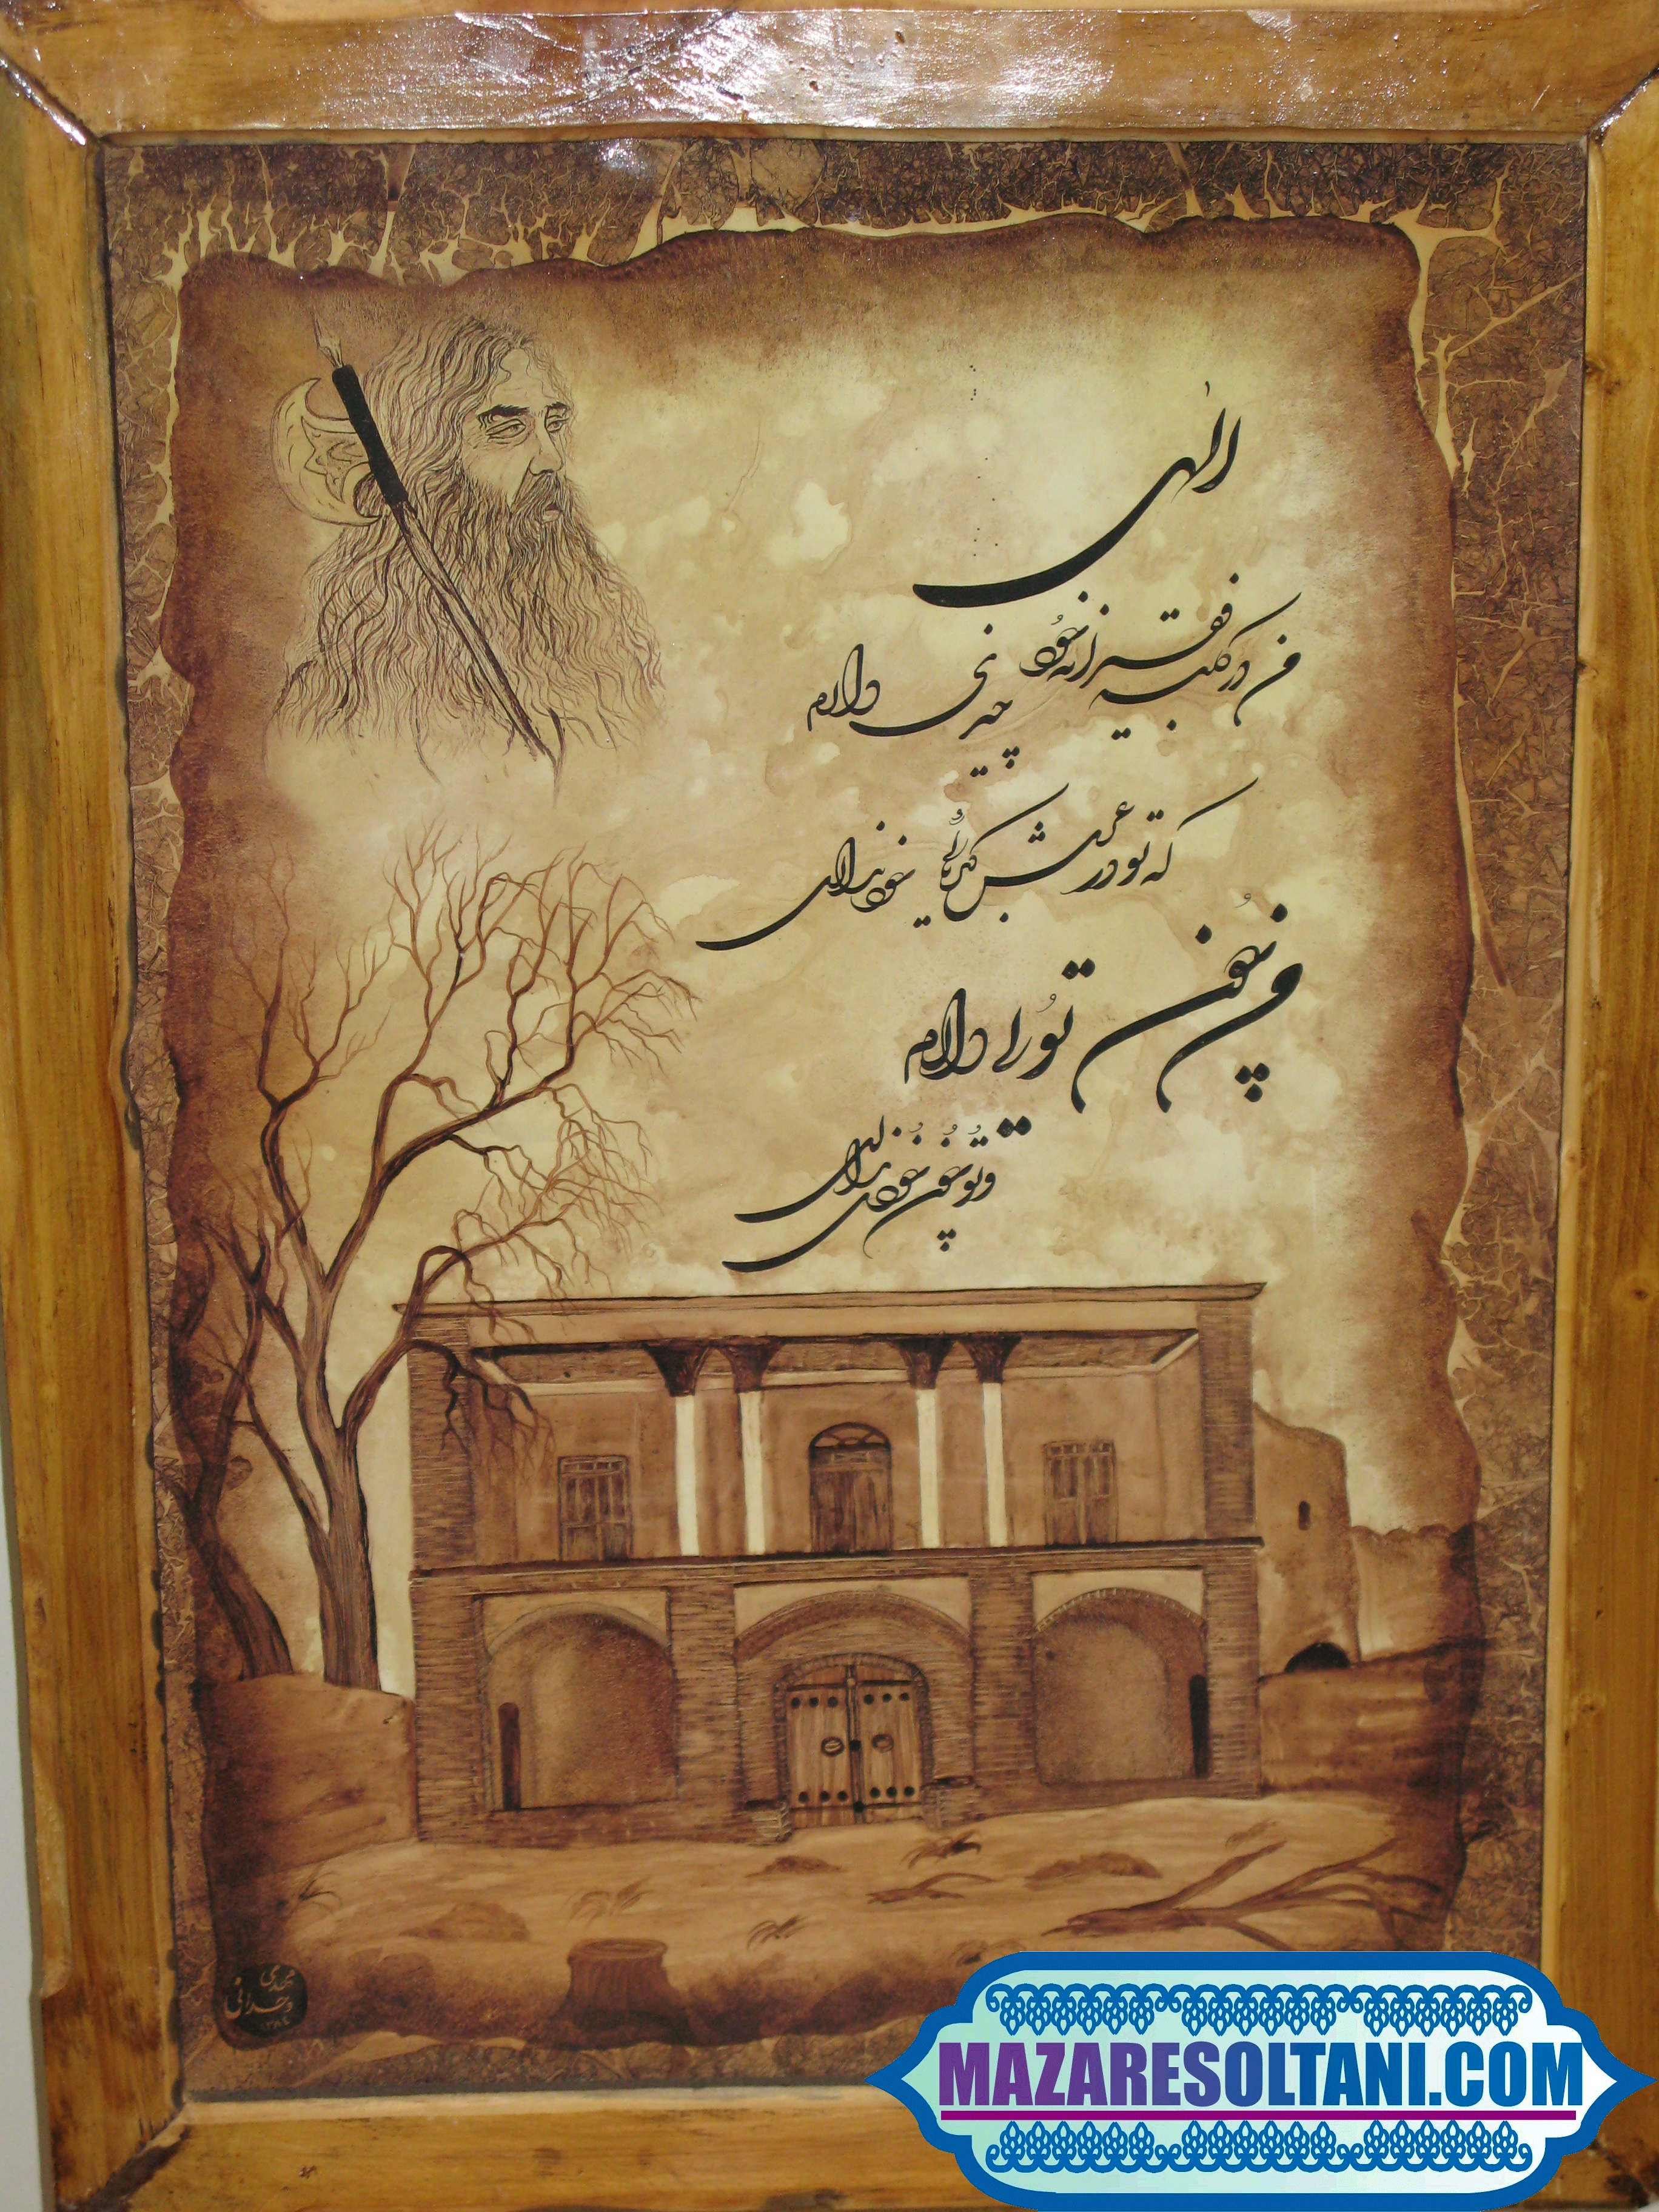 الهی
من در کلبه فقیرانه خود چیزی دارم
که تو در عرش کبریایی خود نداری
من چون تو را دارم
و تو چون خودی نداری
مهدی
وحدانی
۱۳۸۴
MAZARESOLTANI.COM